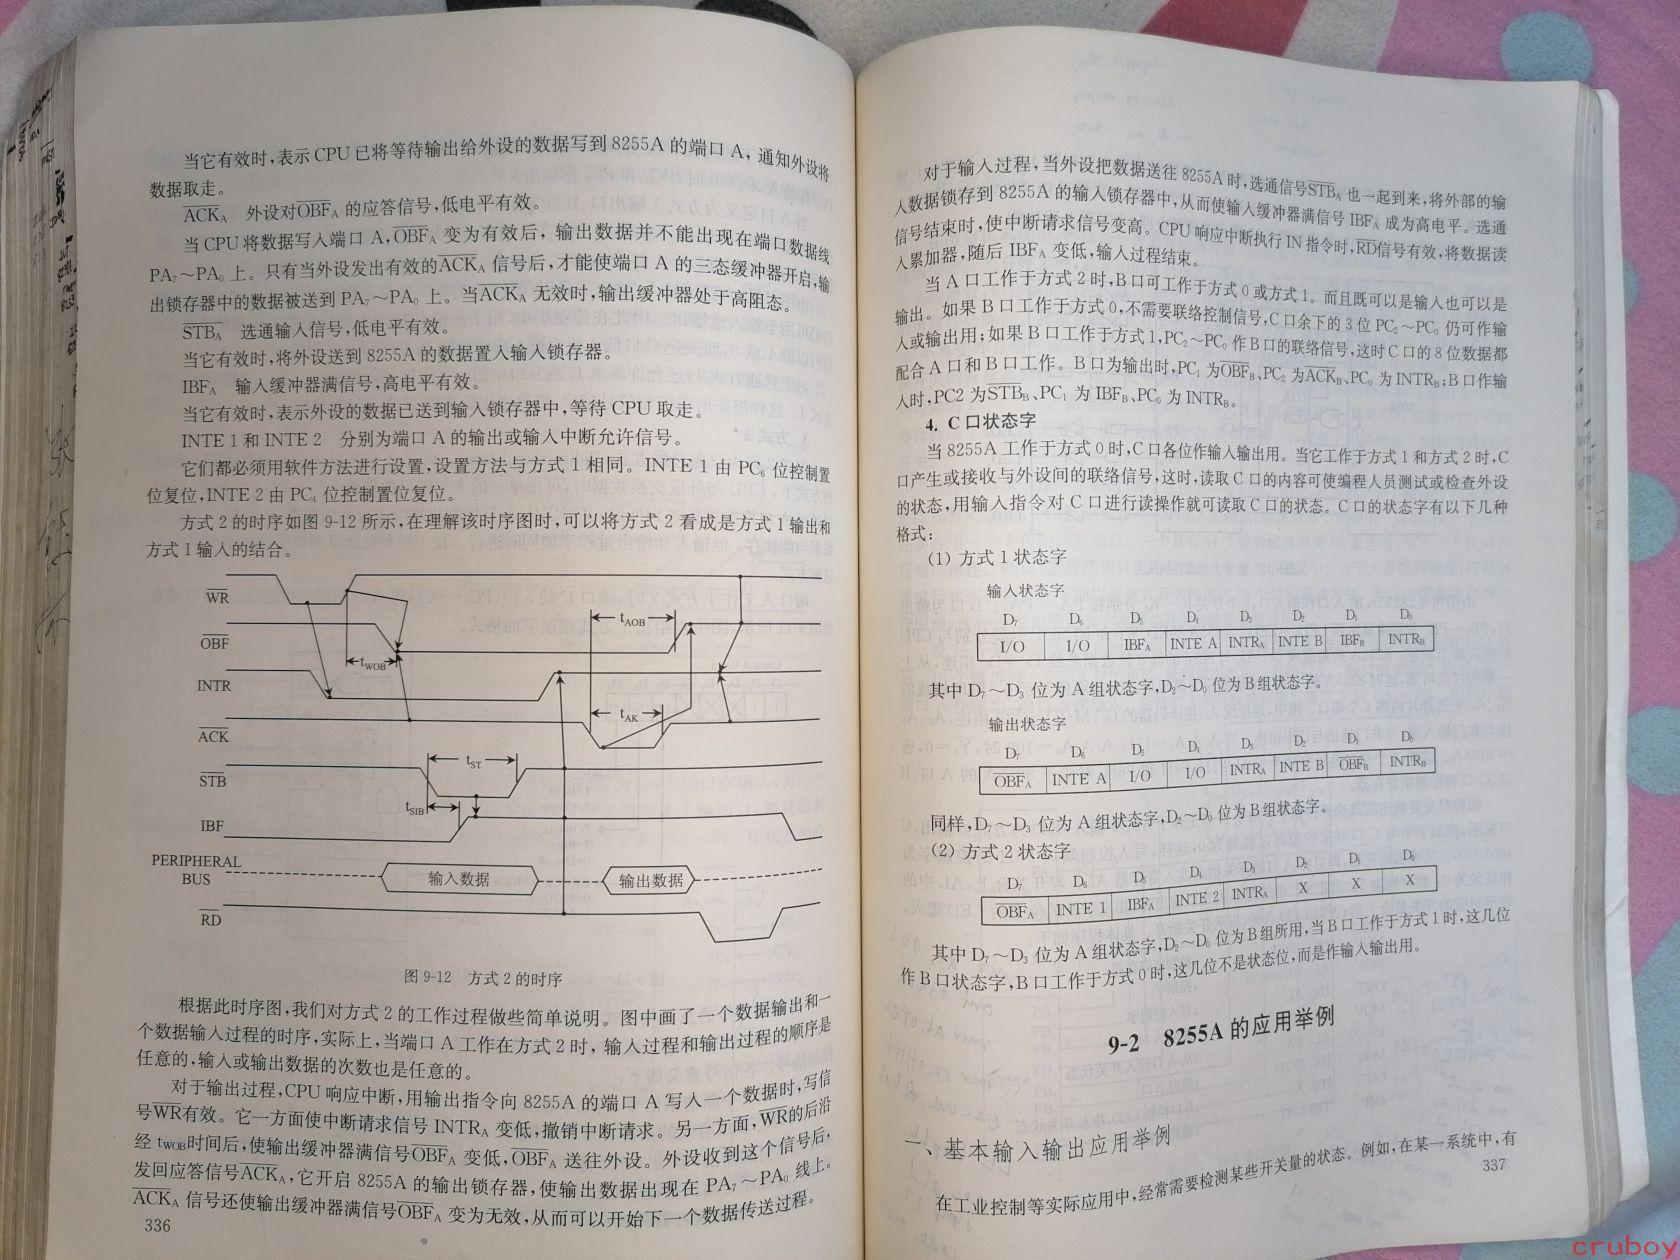 当它有效时,表示 CPU 已将等待输出给外设的数据写到 8255A 的端口 A, 通知外设将
数据取走。
A̅C̅K̅_A 外设对O̅B̅F̅_A 的应答信号,低电平有效。
当 CPU 将数据写入端口 A,O̅B̅F̅_A 变为有效后, 输出数据并不能出现在端口数据线
PA₇～PA₀ 上。只有当外设发出有效的A̅C̅K̅_A 信号后,才能使端口 A 的三态缓冲器开启,输
出锁存器中的数据被送到 PA₇～PA₀ 上。当A̅C̅K̅_A 无效时,输出缓冲器处于高阻态。
S̅T̅B̅_A 选通输入信号,低电平有效。
当它有效时,将外设送到 8255A 的数据置入输入锁存器。
IBF_A 输入缓冲器满信号,高电平有效。
当它有效时,表示外设的数据已送到输入锁存器中,等待 CPU 取走。
INTE 1 和 INTE 2 分别为端口 A 的输出或输入中断允许信号。
它们都必须用软件方法进行设置,设置方法与方式 1 相同。INTE 1 由 PC₆ 位控制置
位复位,INTE 2 由 PC₄ 位控制置位复位。
方式 2 的时序如图 9-12 所示,在理解该时序图时,可以将方式 2 看成是方式 1 输出和
方式 1 输入的结合。
W̅R̅
t_AOB
O̅B̅F̅
t_WOB
INTR
t_AK
A̅C̅K̅
t_ST
S̅T̅B̅
t_SIB
IBF
PERIPHERAL
BUS
输入数据 输出数据
R̅D̅
图 9-12 方式 2 的时序
根据此时序图,我们对方式 2 的工作过程做些简单说明。图中画了一个数据输出和一
个数据输入过程的时序,实际上,当端口 A 工作在方式 2 时, 输入过程和输出过程的顺序是
任意的,输入或输出数据的次数也是任意的。
对于输出过程,CPU 响应中断,用输出指令向 8255A 的端口 A 写入一个数据时,写信
号W̅R̅有效。它一方面使中断请求信号 INTR_A 变低,撤销中断请求。另一方面,W̅R̅的后沿
经 t_WOB时间后,使输出缓冲器满信号O̅B̅F̅_A 变低,O̅B̅F̅_A 送往外设。外设收到这个信号后,
发回应答信号A̅C̅K̅_A,它开启 8255A 的输出锁存器,使输出数据出现在 PA₇～PA₀ 线上。
A̅C̅K̅_A 信号还使输出缓冲器满信号O̅B̅F̅_A 变为无效,从而可以开始下一个数据传送过程。
336
对于输入过程,当外设把数据送往 8255A 时,选通信号S̅T̅B̅_A 也一起到来,将外部的输
入数据锁存到 8255A 的输入锁存器中,从而使输入缓冲器满信号 IBF_A 成为高电平。选通
信号结束时,使中断请求信号变高。CPU 响应中断执行 IN 指令时,R̅D̅信号有效,将数据读
入累加器,随后 IBF_A 变低,输入过程结束。
当 A 口工作于方式 2 时,B 口可工作于方式 0 或方式 1。而且既可以是输入也可以是
输出。如果 B 口工作于方式 0,不需要联络控制信号,C 口余下的 3 位 PC₂～PC₀ 仍可作输
入或输出用;如果 B 口工作于方式 1,PC₂～PC₀ 作 B 口的联络信号,这时 C 口的 8 位数据都
配合 A 口和 B 口工作。B 口为输出时,PC₁ 为O̅B̅F̅_B、PC₂ 为A̅C̅K̅_B、PC₀ 为 INTR_B;B 口作输
入时,PC2 为S̅T̅B̅_B、PC₁ 为 IBF_B、PC₀ 为 INTR_B。
4. C 口状态字
当 8255A 工作于方式 0 时,C 口各位作输入输出用。当它工作于方式 1 和方式 2 时,C
口产生或接收与外设间的联络信号,这时,读取 C 口的内容可使编程人员测试或检查外设
的状态,用输入指令对 C 口进行读操作就可读取 C 口的状态。C 口的状态字有以下几种
格式:
(1) 方式 1 状态字
输入状态字
D₇ D₆ D₅ D₄ D₃ D₂ D₁ D₀
I/O I/O IBF_A INTE A INTR_A INTE B IBF_B INTR_B
其中 D₇～D₃ 位为 A 组状态字,D₂～D₀ 位为 B 组状态字。
输出状态字
D₇ D₆ D₅ D₄ D₃ D₂ D₁ D₀
O̅B̅F̅_A INTE A I/O I/O INTR_A INTE B O̅B̅F̅_B INTR_B
同样,D₇～D₃ 位为 A 组状态字,D₂～D₀ 位为 B 组状态字。
(2) 方式 2 状态字
D₇ D₆ D₅ D₄ D₃ D₂ D₁ D₀
O̅B̅F̅_A INTE 1 IBF_A INTE 2 INTR_A X X X
其中 D₇～D₃ 位为 A 组状态字,D₂～D₀ 位为 B 组所用,当 B 口工作于方式 1 时,这几位
作 B 口状态字,B 口工作于方式 0 时,这几位不是状态位,而是作输入输出用。
9-2 8255A 的应用举例
一、基本输入输出应用举例
在工业控制等实际应用中,经常需要检测某些开关量的状态。例如,在某一系统中,有
337
cruboy